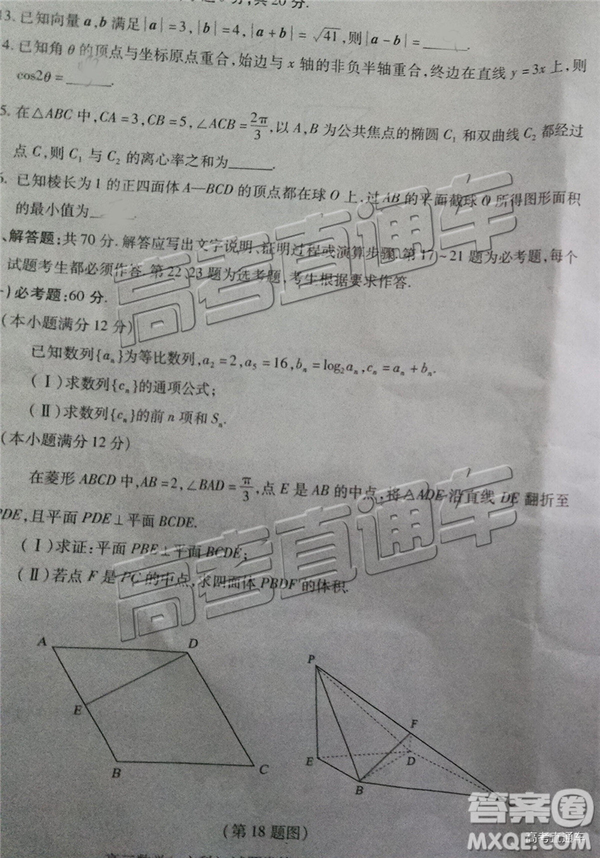 分,共20分.
13. 已知向量a,b满足|a|=5,|b|=4,|a+b|=√41,则|a-b|=____.
4. 已知角θ的顶点与坐标原点重合,始边与x轴的非负半轴重合,终边在直线y=3x上,则
cos2θ=____.
5. 在△ABC中,CA=3,CB=5,∠ACB=2π/3,以A,B为公共焦点的椭圆C₁和双曲线C₂都经过
点C,则C₁与C₂的离心率之和为____.
6. 已知棱长为1的正四面体A—BCD的顶点都在球O上,过AB的平面截球O所得图形面积
的最小值为__
、解答题:共70分.解答应写出文字说明、证明过程或演算步骤.第17~21题为必考题,每个
试题考生都必须作答.第22、23题为选考题,考生根据要求作答.
一)必考题:60分.
(本小题满分12分)
已知数列{aₙ}为等比数列,a₂=2,a₅=16,bₙ=log₂aₙ,cₙ=aₙ+bₙ.
(Ⅰ)求数列{cₙ}的通项公式;
(Ⅱ)求数列{cₙ}的前n项和Sₙ.
(本小题满分12分)
在菱形ABCD中,AB=2,∠BAD=π/3,点E是AB的中点,将△ADE沿直线DE翻折至
PDE,且平面PDE⊥平面BCDE.
(Ⅰ)求证:平面PBE⊥平面BCDE;
(Ⅱ)若点F是PC的中点,求四面体PBDF的体积.
A
D
E
B
C
P
F
E
D
B
(第18题图)
高考直通车
高考直通车
答案圈
MXQE.COM
高考直通车